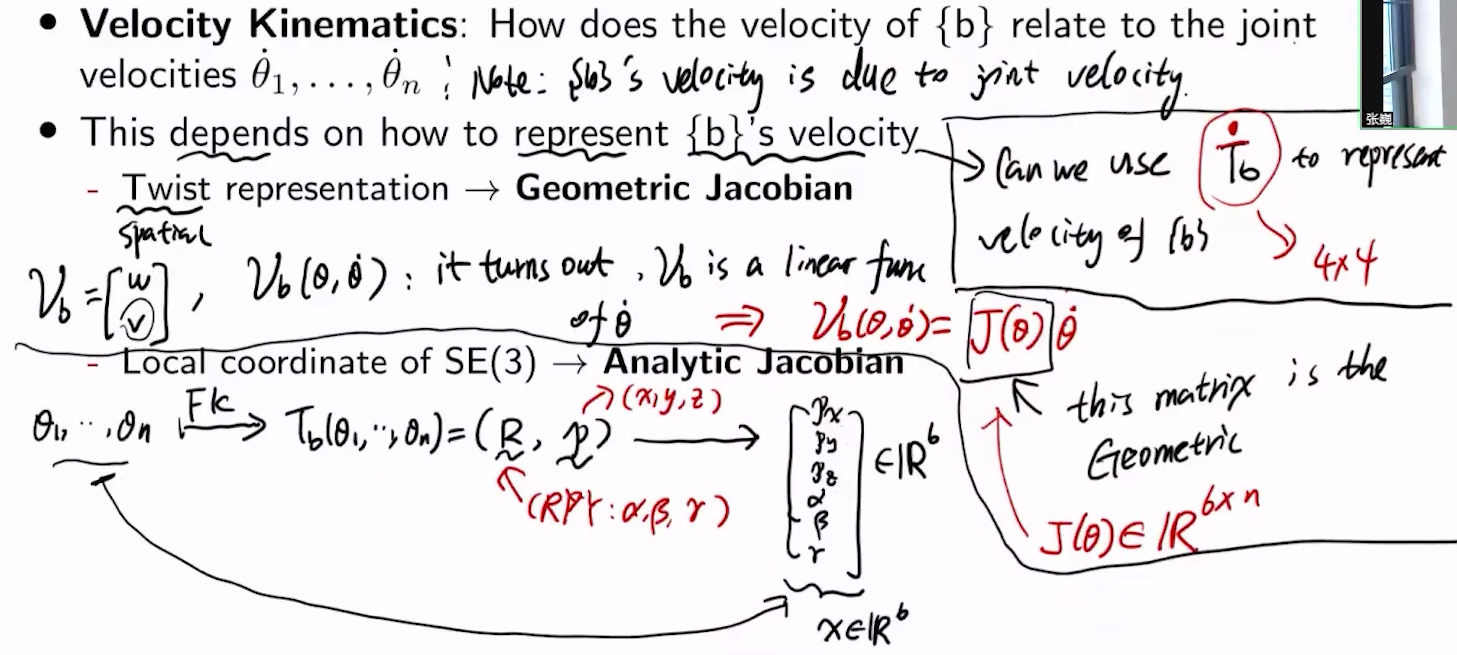 • Velocity Kinematics: How does the velocity of {b} relate to the joint
velocities θ̇₁, . . . , θ̇ₙ ; Note: {b}'s velocity is due to joint velocity.
张巍
• This depends on how to represent {b}'s velocity
→ Can we use Ṫb to represent
velocity of {b}
4×4
- Twist representation → Geometric Jacobian
spatial
𝒱b = [w v], 𝒱b(θ, θ̇) : it turns out, 𝒱b is a linear func
of θ̇ ⇒ 𝒱b(θ,θ̇) = J(θ) θ̇
this matrix is the
Geometric
J(θ) ∈ ℝ^{6×n}
- Local coordinate of SE(3) → Analytic Jacobian
(x,y,z)
θ₁, ··, θn FK→ Tb(θ₁, ··, θn) = (R, p) → [px py pz α β γ] ∈ ℝ⁶
(RPY: α, β, γ)
x∈ℝ⁶